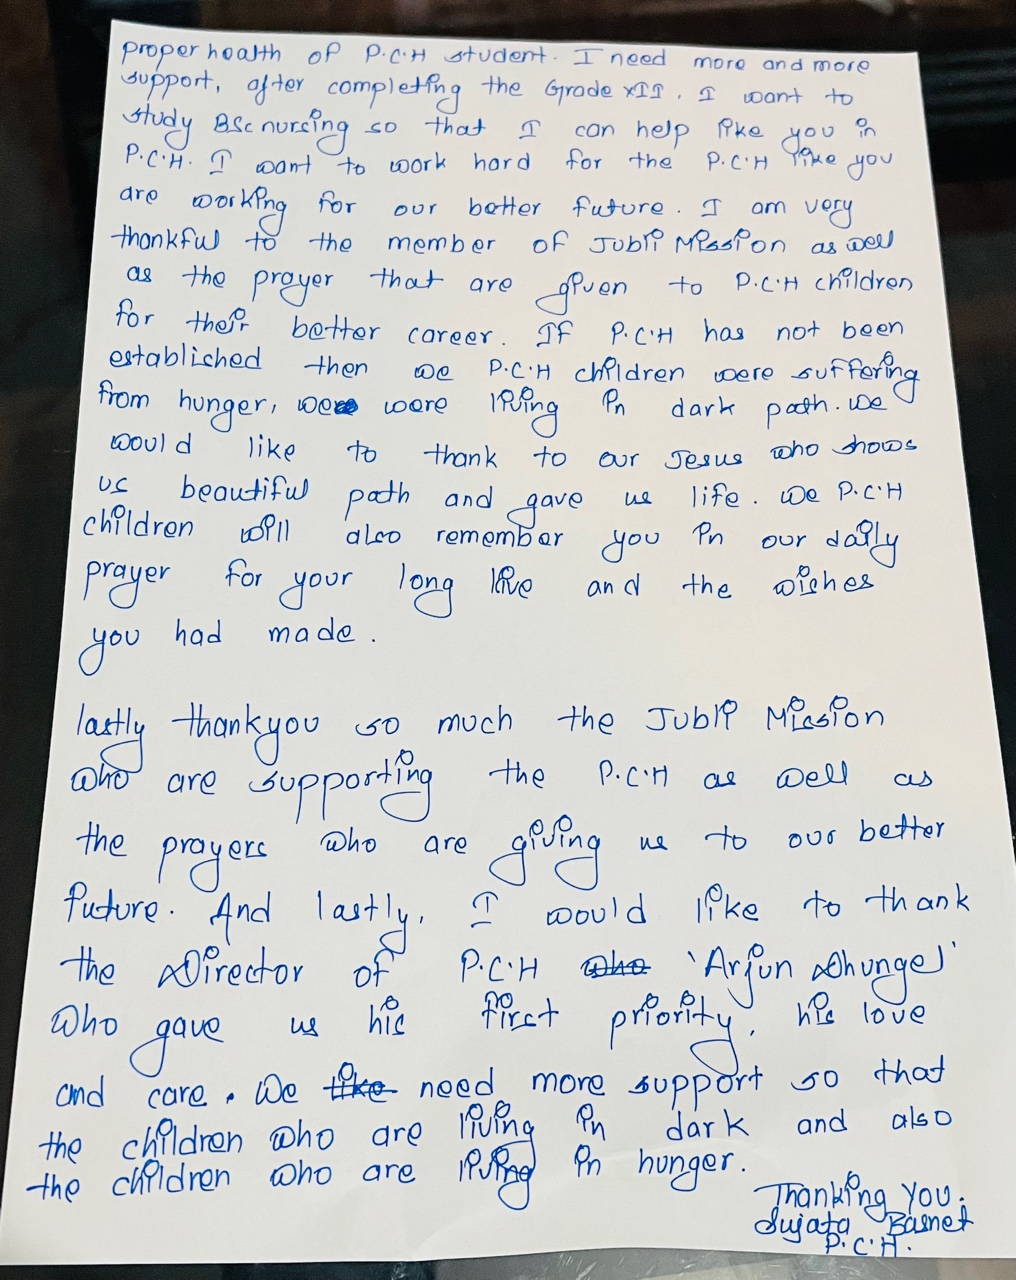 proper health of P.C.H student. I need more and more
support, after completing the Grade XII, I want to
study BSc nursing so that I can help like you in
P.C.H. I want to work hard for the P.C.H like you
are working for our better future. I am very
thankful to the member of Jubli Mission as well
as the prayer that are given to P.C.H children
for their better career. If P.C.H has not been
established then we P.C.H children were suffering
from hunger, were living in dark path. We
would like to thank to our Jesus who shows
us beautiful path and gave us life. We P.C.H
children will also remember you in our daily
prayer for your long live and the wishes
you had made.
lastly thankyou so much the Jubli Mission
who are supporting the P.C.H as well as
the prayers who are giving us to our better
future. And lastly, I would like to thank
the Director of P.C.H who 'Arjun Dhungel'
who gave us his first priority, his love
and care. We like need more support so that
the children who are living in dark and also
the children who are living in hunger.
Thanking You.
Sujata Basnet
P.C.H.